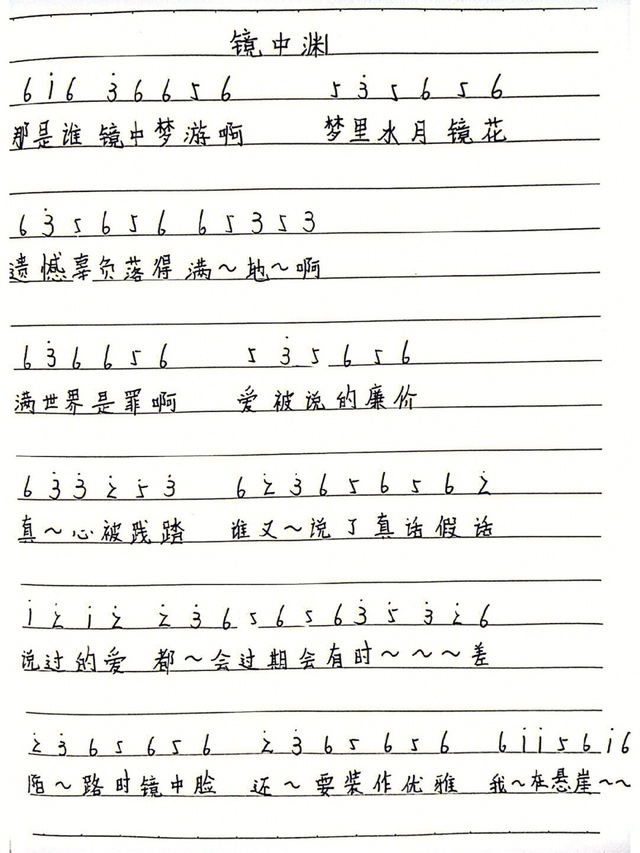 镜中渊
6 i 6 3̇ 6 6 5 6 5 3̇ 5 6 5 6
那是谁 镜中梦游啊 梦里水月 镜花
6 3̇ 5 6 5 6 6 5 3 5 3
遗憾辜负落得 满～地～啊
6 3̇ 6 6 5 6 5 3̇ 5 6 5 6
满世界是罪啊 爱被说的廉价
6 3̇ 3̇ 2̇ 5̇ 3̇ 6 2̇ 3̇ 6 5 6 5 6 2̇
真～心被践踏 谁又～说了真话假话
i 2̇ i 2̇ 2̇ 3̇ 6 5 6 5 6 3̇ 5̇ 3̇ 2̇ 6
说过的爱 都～会过期会有时～～～差
2̇ 3̇ 6 5 6 5 6 2̇ 3̇ 6 5 6 5 6 6 i i 5 6 i 6
陌～路时镜中脸 还～要装作优雅 我～在悬崖～～